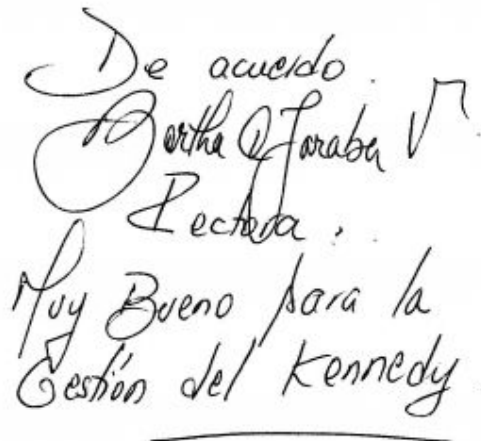 De acuerdo.
Bertha Q Jaraba V
Rectora.
Muy Bueno para la
Gestión del Kennedy